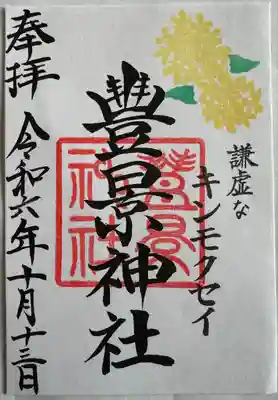 奉拝
豊景神社
豊景
神社
謙虚な
キンモクセイ
令和六年十月十三日